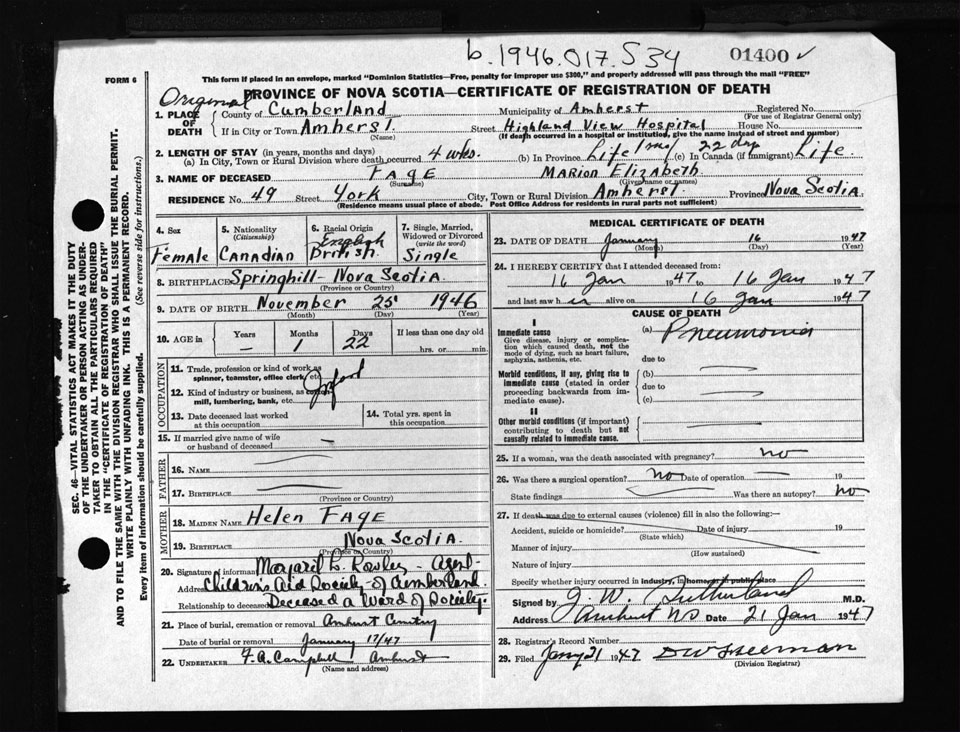 b. 1946.017.534
01400 ✓
This form if placed in an envelope, marked "Dominion Statistics—Free, penalty for improper use $300," and properly addressed will pass through the mail "FREE"
FORM 6
Original
PROVINCE OF NOVA SCOTIA—CERTIFICATE OF REGISTRATION OF DEATH
1. PLACE OF DEATH { County of Cumberland Municipality of Amherst Registered No.
(For use of Registrar General only)
If in City or Town Amherst Street Highland View Hospital House No.
(Name) (If death occurred in a hospital or institution, give the name instead of street and number)
2. LENGTH OF STAY (in years, months and days)
(a) In City, Town or Rural Division where death occurred 4 wks. (b) In Province Life 1 mo/ 22 dys (c) In Canada (if immigrant) Life.
3. NAME OF DECEASED FAGE Marion Elizabeth
(Surname) (Given name or names)
RESIDENCE No. 49 Street York City, Town or Rural Division Amherst. Province Nova Scotia.
(Residence means usual place of abode. Post Office Address for residents in rural parts not sufficient)
SEC. 46—VITAL STATISTICS ACT MAKES IT THE DUTY
OF THE UNDERTAKER OR PERSON ACTING AS UNDER-
TAKER TO OBTAIN ALL THE PARTICULARS REQUIRED
IN THE "CERTIFICATE OF REGISTRATION OF DEATH"
AND TO FILE THE SAME WITH THE DIVISION REGISTRAR WHO SHALL ISSUE THE BURIAL PERMIT.
WRITE PLAINLY WITH UNFADING INK. THIS IS A PERMANENT RECORD.
Every item of information should be carefully supplied. (See reverse side for instructions.)
4. Sex
Female
5. Nationality
(Citizenship)
Canadian
6. Racial Origin
English
British.
7. Single, Married, Widowed or Divorced
(write the word)
Single
8. BIRTHPLACE Springhill - Nova Scotia.
(Province or Country)
9. DATE OF BIRTH November 25 1946
(Month) (Day) (Year)
10. AGE in { Years – Months 1 Days 22 If less than one day old
hrs. or min.
OCCUPATION
11. Trade, profession or kind of work as
spinner, teamster, office clerk, etc.
12. Kind of industry or business, as
mill, lumbering, bank, etc.
13. Date deceased last worked
at this occupation
14. Total yrs. spent in
this occupation
15. If married give name of wife
or husband of deceased –
FATHER
16. NAME
17. BIRTHPLACE
(Province or Country)
MOTHER
18. MAIDEN NAME Helen FAGE
19. BIRTHPLACE Nova Scotia.
(Province or Country)
20. Signature of informant - Agent -
Address Childrens Aid Society of Cumberland.
Relationship to deceased Deceased a Ward of Society.
21. Place of burial, cremation or removal Amherst Cemetery
Date of burial or removal January 17/47
22. UNDERTAKER F. A. Campbell Amherst
(Name and address)
MEDICAL CERTIFICATE OF DEATH
23. DATE OF DEATH January 16 1947
(Month) (Day) (Year)
24. I HEREBY CERTIFY that I attended deceased from:
16 Jan 1947 to 16 Jan 1947
and last saw h er alive on 16 Jan 1947
CAUSE OF DEATH
I
Immediate cause
Give disease, injury or complica-
tion which caused death, not the
mode of dying, such as heart failure,
asphyxia, asthenia, etc.
(a) Pneumonia
due to
Morbid conditions, if any, giving rise to
immediate cause (stated in order
proceeding backwards from imme-
diate cause).
(b)
due to
(c)
II
Other morbid conditions (if important)
contributing to death but not
causally related to immediate cause.
25. If a woman, was the death associated with pregnancy? no
26. Was there a surgical operation? no Date of operation 19
State findings Was there an autopsy? no
27. If death was due to external causes (violence) fill in also the following:—
Accident, suicide or homicide? Date of injury 19
(State which)
Manner of injury
(How sustained)
Nature of injury
Specify whether injury occurred in industry, in home, or in public place
Signed by J. W. Sutherland M.D.
Address Amherst NS Date 21 Jan 1947
28. Registrar's Record Number
29. Filed Jany 21 1947 D W Freeman
(Division Registrar)